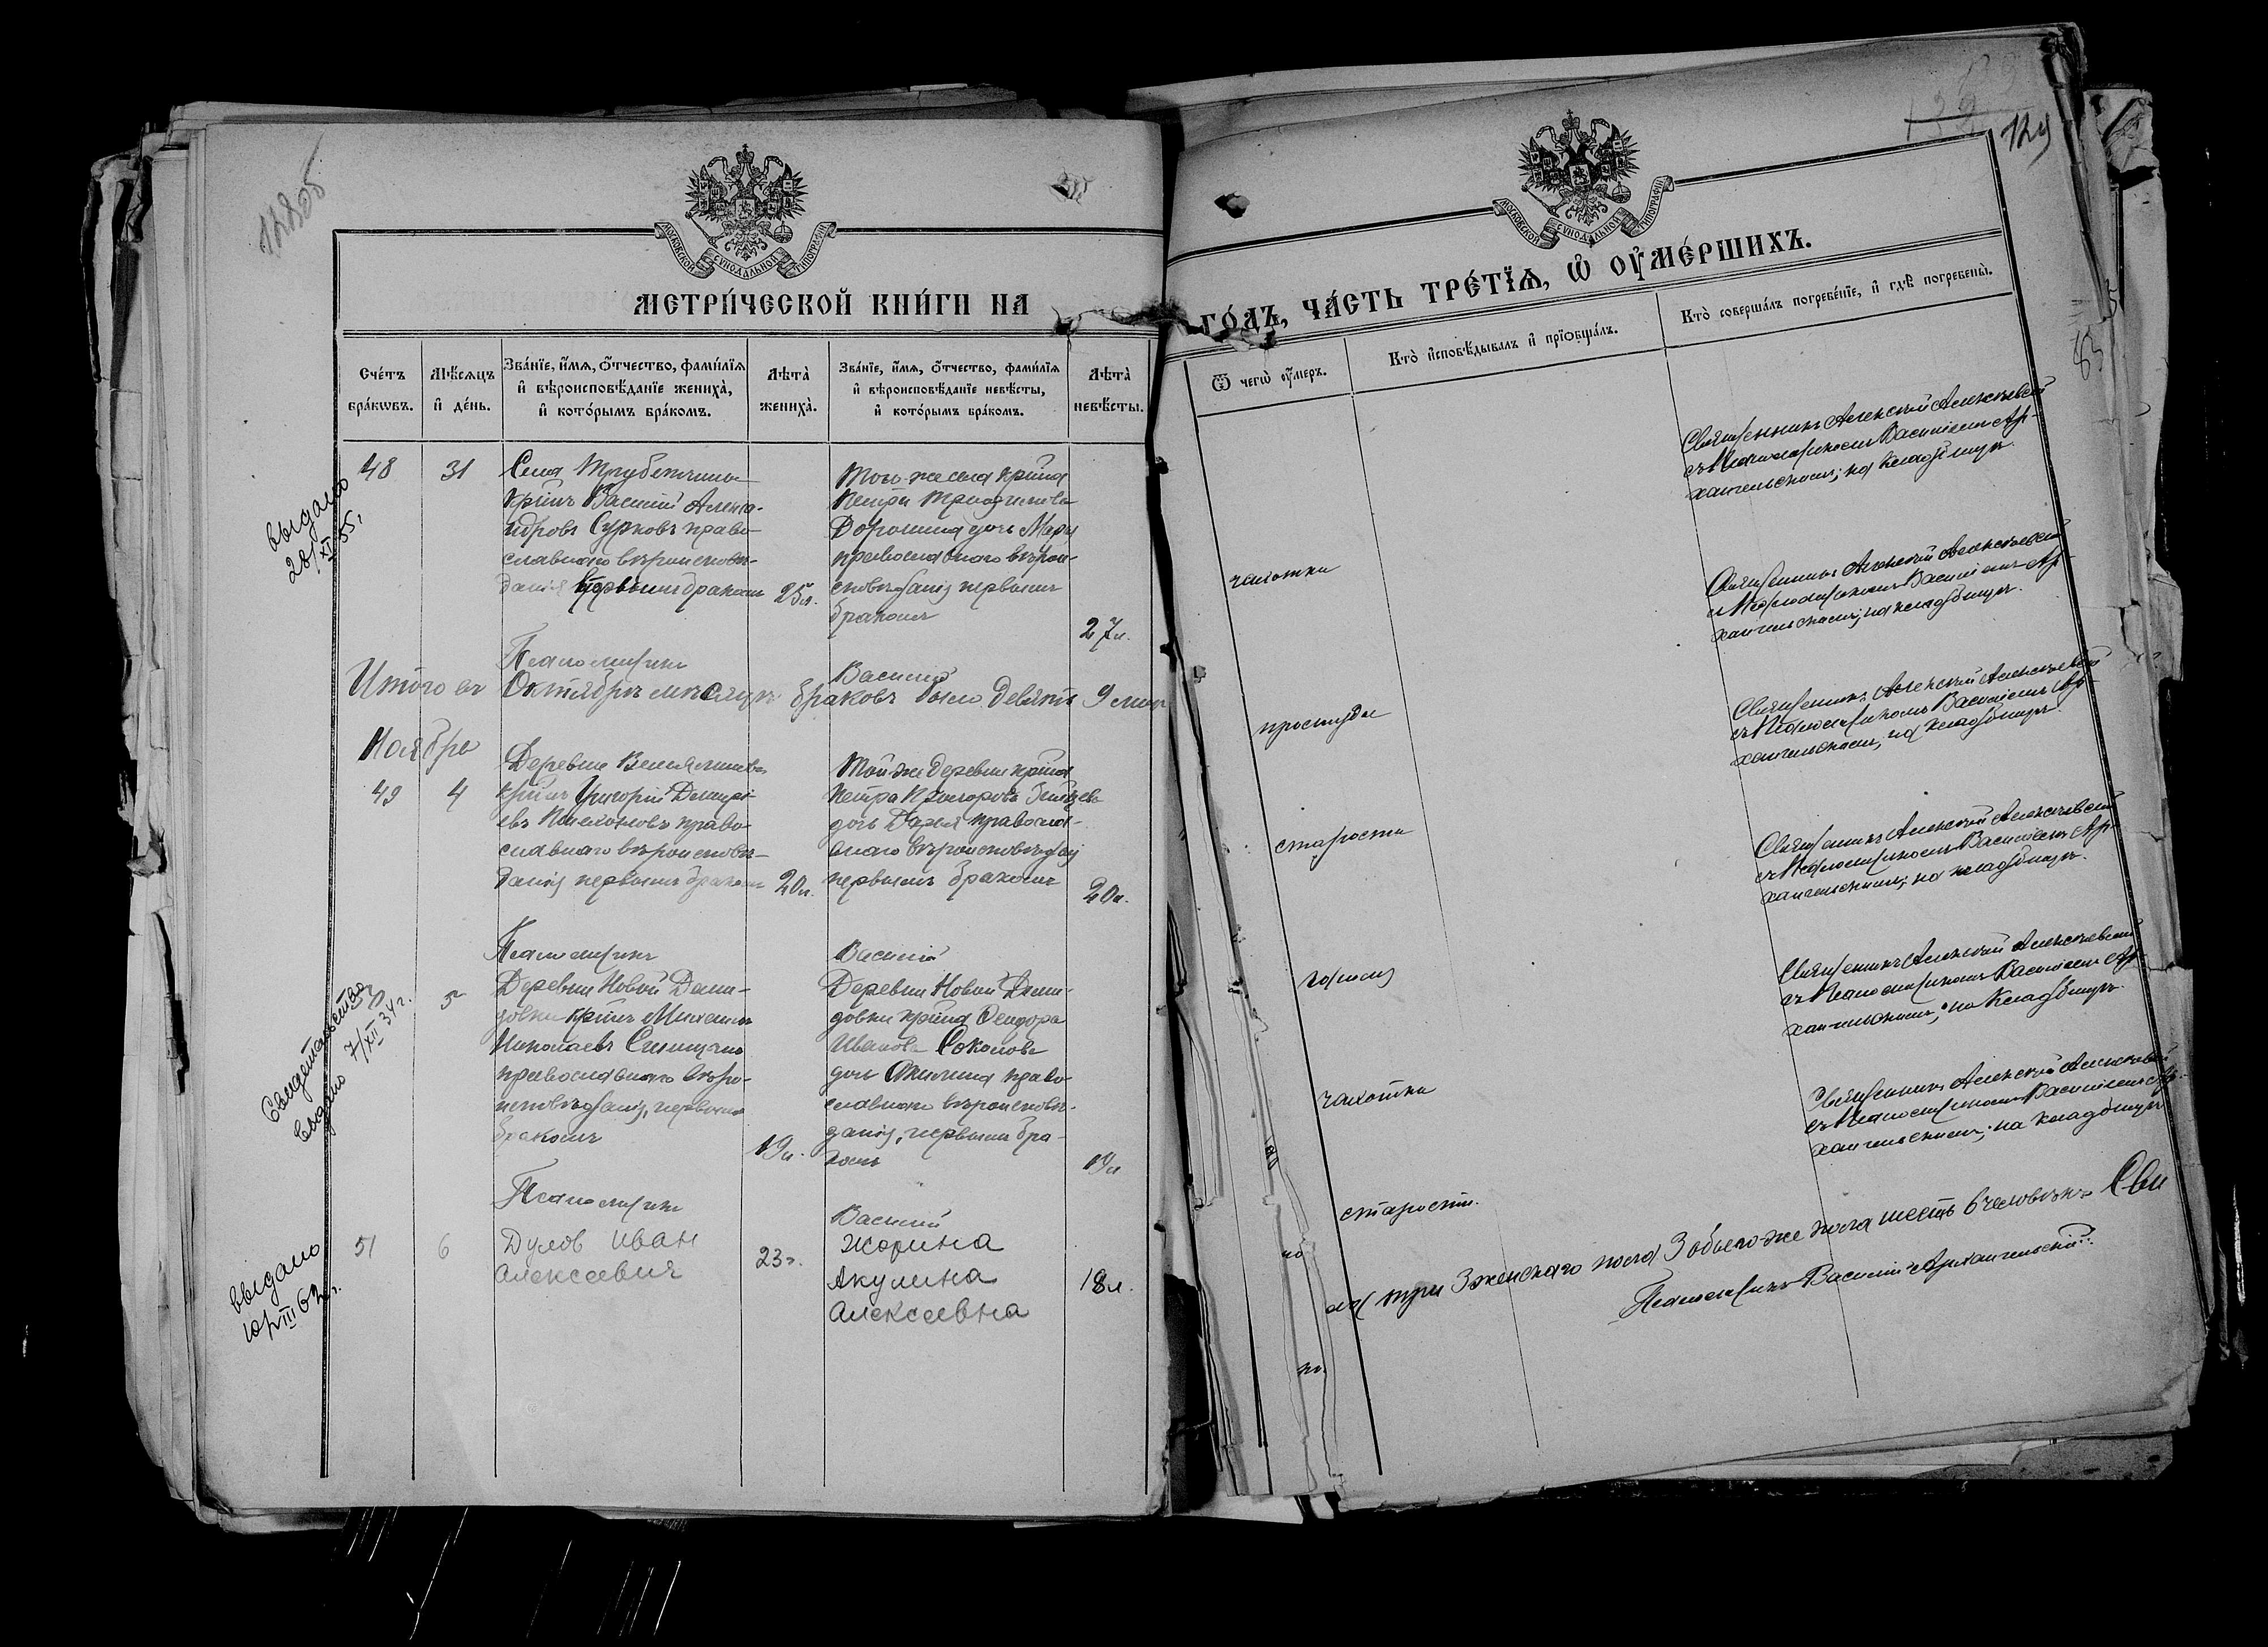 128об
МОСКОВСКОЙ СѴНОДАЛЬНОЙ ТИПОГРАФІИ
МЕТРИ́ЧЕСКОЙ КНИ́ГИ НА
Сче́тъ бра́кѡвъ.
Мѣ́сяцъ и҆ де́нь.
Зва́нїе, и҆́мѧ, ѻ҆́тчество, фами́лїѧ
и҆ вѣроисповѣ́данїе жениха̀,
и҆ кото́рымъ бра́комъ.
Лѣта̀ жениха̀.
Зва́нїе, и҆́мѧ, ѻ҆́тчество, фами́лїѧ
и҆ вѣроисповѣ́данїе невѣ́сты,
и҆ кото́рымъ бра́комъ.
Лѣта̀ невѣ́сты.
выдано
28/XI 55г.
48
31
Села
кр҃нъ Василій Алекса-
ндровъ Сурковъ право-
славнаго вѣроисповѣ-
данія первымъ бракомъ
25л.
Того-же села кр҃нина
Петра
Доронина дочь Марія
православнаго вѣрои-
сповѣданія первымъ
бракомъ
27л.
Псаломщикъ
Василій
Итого въ Октябрѣ мѣсяцѣ браковъ было девять 9
Ноябрь
49
4
Деревни
кр҃нъ Григорій Димитрі-
евъ право-
славнаго вѣроисповѣ-
данія первымъ бракомъ
20л.
Той-же деревни кр҃нина
Петра
дочь Дарья православ-
наго вѣроисповѣданія
первымъ бракомъ
20л.
Псаломщикъ
Василій
Свидетельство
выдано 7/XII 34г.
5
Деревни Новой Деми-
довки кр҃нъ Михаилъ
Николаевъ Синицынъ
православнаго вѣро-
исповѣданія, первымъ
бракомъ
19л.
Деревни Новой Деми-
довки кр҃нина Ѳеодора
Иванова Соколова
дочь Акилина право-
славнаго вѣроисповѣ-
данія, первымъ бра-
комъ
19л
Псаломщикъ
Василій
выдано
10/VIII 62г.
51
6
Дулов Иван
Алексеевич
23г.
Жорина
Акулина
Алексеевна
18л.
129
МОСКОВСКОЙ СѴНОДАЛЬНОЙ ТИПОГРАФІИ
ГО́ДЪ, ЧА́СТЬ ТРЕ́ТЇѦ, Ѡ҆ ОУ҆МЕ́РШИХЪ.
Ѿ чегѡ̀ ᲂу҆́меръ.
Кто̀ и҆сповѣ́дывалъ и҆ прїѡбща́лъ.
Кто̀ соверша́лъ погребе́нїе, и҆ гдѣ̀ погребены̀.
Священникъ Алексій Алексѣевскій
съ Псаломщикомъ Василіемъ Ар-
хангельскимъ; на кладбищѣ.
чахотки
Священникъ Алексій Алексѣевскій
съ Псаломщикомъ Василіемъ Ар-
хангельскимъ; на кладбищѣ.
простуды
Священникъ Алексій Алексѣевскій
съ Псаломщикомъ Василіемъ Ар-
хангельскимъ; на кладбищѣ.
старости
Священникъ Алексій Алексѣевскій
съ Псаломщикомъ Василіемъ Ар-
хангельскимъ; на кладбищѣ.
Священникъ Алексій Алексѣевскій
съ Псаломщикомъ Василіемъ Ар-
хангельскимъ; на кладбищѣ.
чахотки
Священникъ Алексій Алексѣевскій
съ Псаломщикомъ Василіемъ Ар-
хангельскимъ; на кладбищѣ
старости.
три 3 женскаго пола 3 обоего-же пола шесть 6 человѣкъ Свя
Псаломщикъ Василій Архангельскій